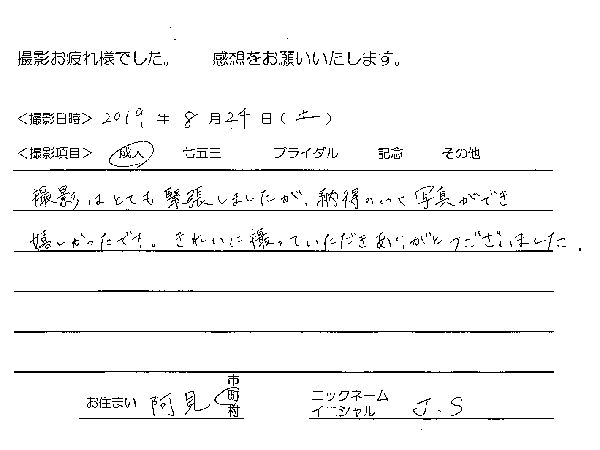 撮影お疲れ様でした。 感想をお願いいたします。
<撮影日時> 2019 年 8 月 24 日 ( 土 )
<撮影項目> 成人 七五三 ブライダル 記念 その他
撮影はとても緊張しましたが、納得のいく写真ができ
嬉しかったです。きれいに撮っていただきありがとうございました.
お住まい 阿見 市町村
ニックネーム イニシャル J.S